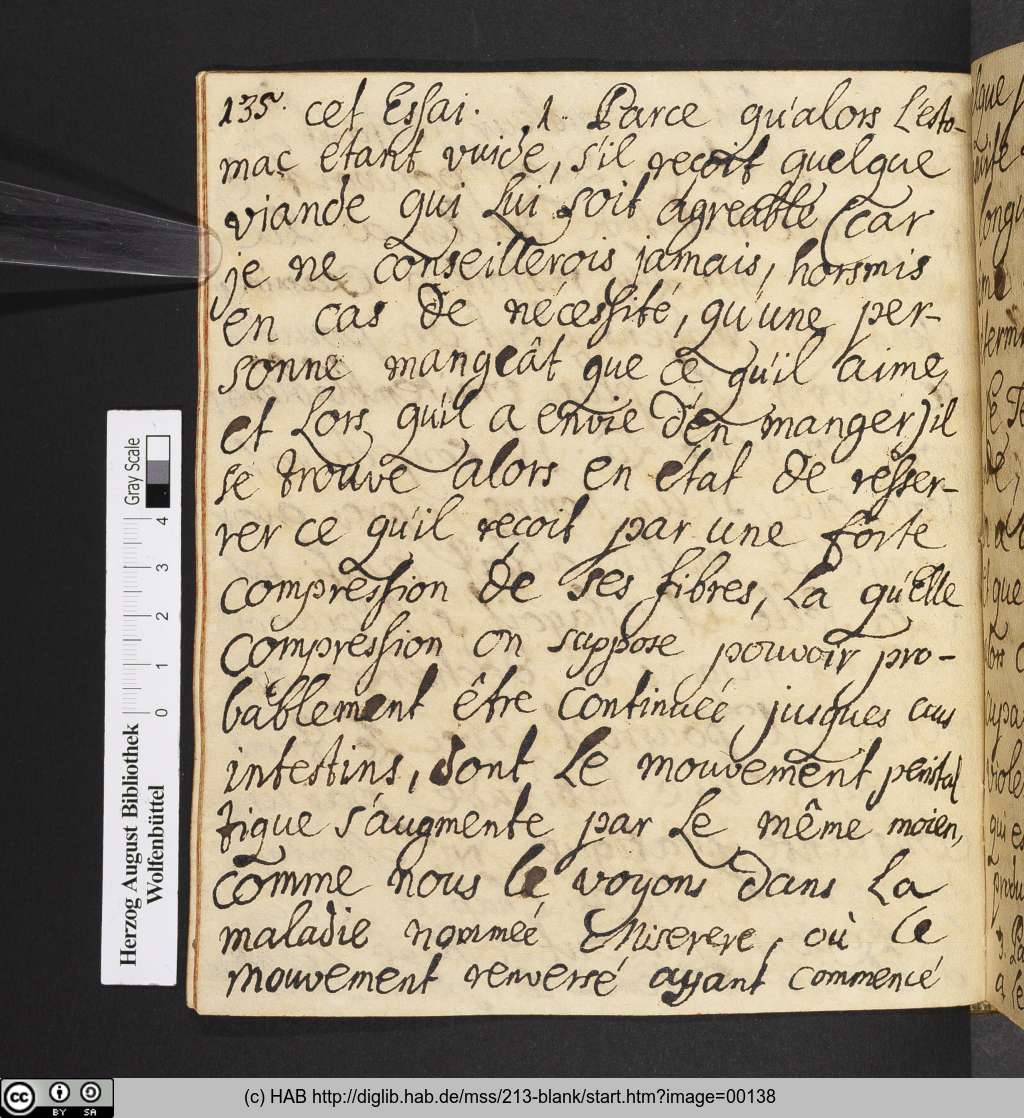 135. cet Essai. 1. Parce qu'alors L'esto-
mac étant vuide, s'il reçoit quelque
viande qui Lui soit agreable (car
je ne conseillerois jamais, horsmis
en cas de nécessité, qu'une per-
sonne mangeât que ce qu'il aime,
et Lors qu'il a envie d'en manger) il
se trouve alors en état de resser-
rer ce qu'il reçoit par une forte
compression de ses fibres, La qu'Elle
compression on suppose pouvoir pro-
bablement être continuée jusques aus
intestins, dont Le mouvement peristal
tique s'augmente par Le même moien,
comme nous le voyons dans La
maladie nommée Miserere, où Le
mouvement renversé ayant commencé
Herzog August Bibliothek
Wolfenbüttel
Gray Scale
0 1 2 3 4
(c) HAB http://diglib.hab.de/mss/213-blank/start.htm?image=00138
cc BY SA